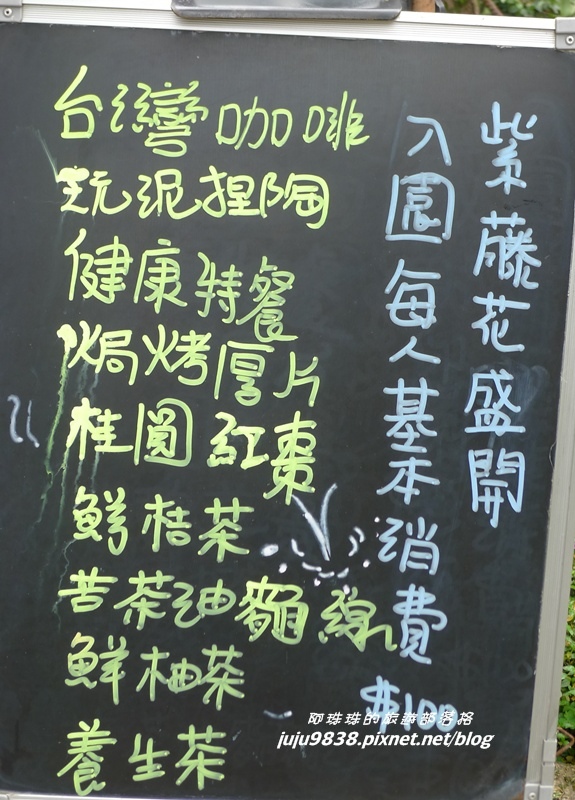 紫藤花盛開
入園每人基本消費
$100
台灣咖啡
玩泥捏陶
健康特餐
焗烤厚片
桂圓紅棗
鮮桔茶
苦茶油麵線
鮮柚茶
養生茶
阿珠珠的旅遊部落格
juju9838.pixnet.net/blog